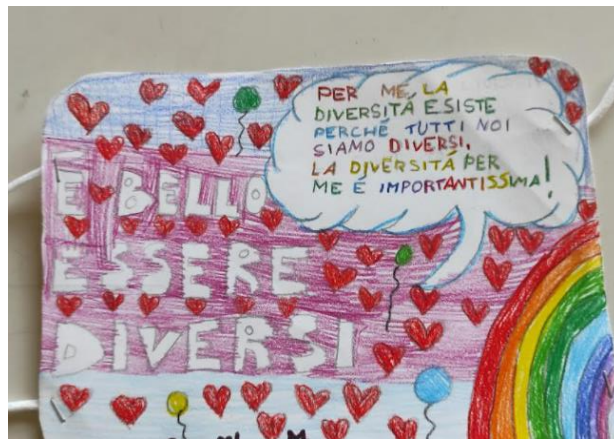 PER ME, LA
DIVERSITÀ ESISTE
PERCHÉ TUTTI NOI
SIAMO DIVERSI.
LA DIVERSITÀ PER
ME È IMPORTANTISSIMA!
È BELLO
ESSERE
DIVERSI